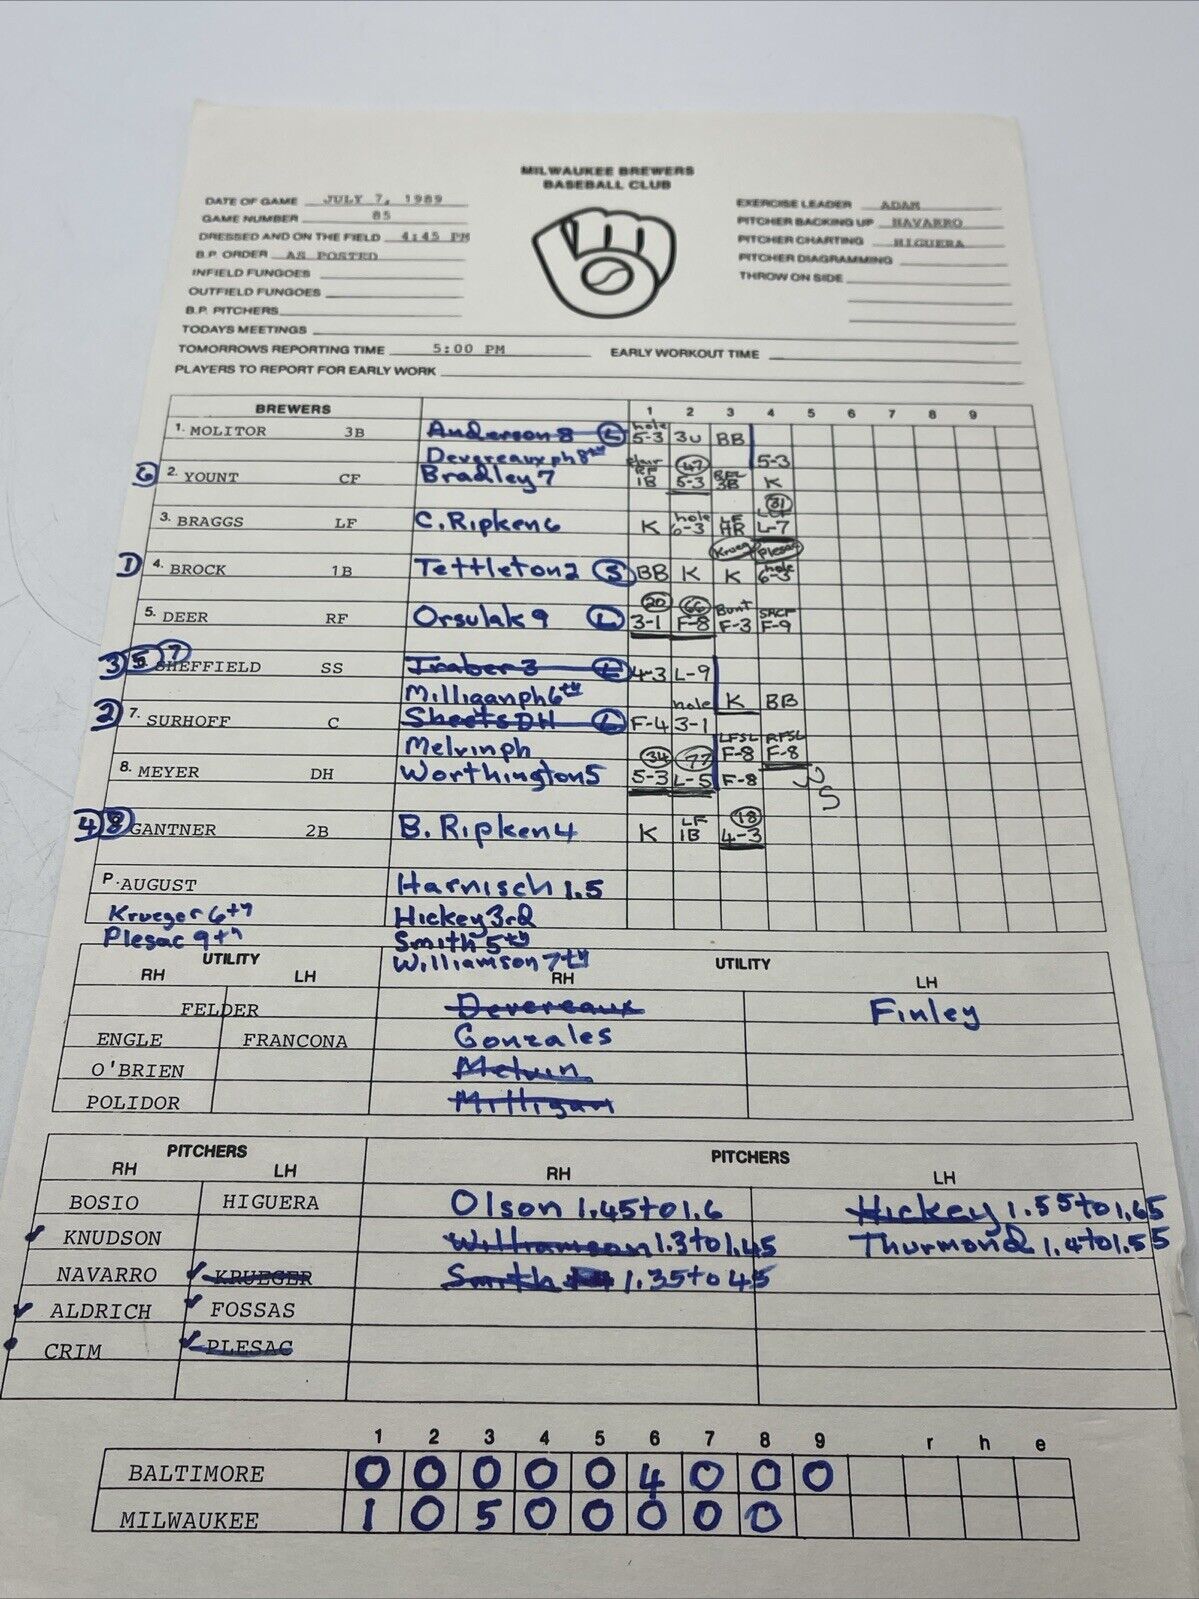 MILWAUKEE BREWERS
BASEBALL CLUB
DATE OF GAME JULY 7, 1989
GAME NUMBER 85
DRESSED AND ON THE FIELD 4:45 PM
B.P. ORDER AS POSTED
INFIELD FUNGOES
OUTFIELD FUNGOES
B.P. PITCHERS
TODAYS MEETINGS
TOMORROWS REPORTING TIME 5:00 PM EARLY WORKOUT TIME
PLAYERS TO REPORT FOR EARLY WORK
EXERCISE LEADER ADAM
PITCHER BACKING UP NAVARRO
PITCHER CHARTING HIGUERA
PITCHER DIAGRAMMING
THROW ON SIDE
BREWERS 1 2 3 4 5 6 7 8 9
1. MOLITOR 3B Anderson 8 L hole 5-3 3U BB
Devereaux ph 8th 5-3
6 2. YOUNT CF Bradley 7 RF 1B 47 5-3 3B K
3. BRAGGS LF C. Ripken 6 K hole 6-3 LF HR 31 L-7
Krueg Plesac
1 4. BROCK 1B Tettleton 2 S BB K K hole 6-3
5. DEER RF Orsulak 9 L 20 3-1 66 F-8 Bunt F-3 SACF F-9
3 5 7 SHEFFIELD SS Traber 3 L 4-3 L-9
Milligan ph 6th K BB
2 7. SURHOFF C Sheets DH L F-4 hole 3-1
Melvin ph LFSL F-8 RFSL F-8
8. MEYER DH Worthington 5 34 5-3 77 L-5 F-8
4 8 GANTNER 2B B. Ripken 4 K LF 1B 18 4-3
P. AUGUST Harnisch 1.5
Krueger 6th Hickey 3rd
Plesac 9th Smith 5th
Williamson 7th
UTILITY UTILITY
RH LH RH LH
FELDER Devereaux Finley
ENGLE FRANCONA Gonzales
O'BRIEN Melvin
POLIDOR Milligan
PITCHERS PITCHERS
RH LH RH LH
BOSIO HIGUERA Olson 1.45 to 1.6 Hickey 1.55 to 1.65
KNUDSON Williamson 1.3 to 1.45 Thurmond 1.4 to 1.55
NAVARRO KRUEGER Smith 1.35 to 45
ALDRICH FOSSAS
CRIM PLESAC
1 2 3 4 5 6 7 8 9 r h e
BALTIMORE 0 0 0 0 0 4 0 0 0
MILWAUKEE 1 0 5 0 0 0 0 0